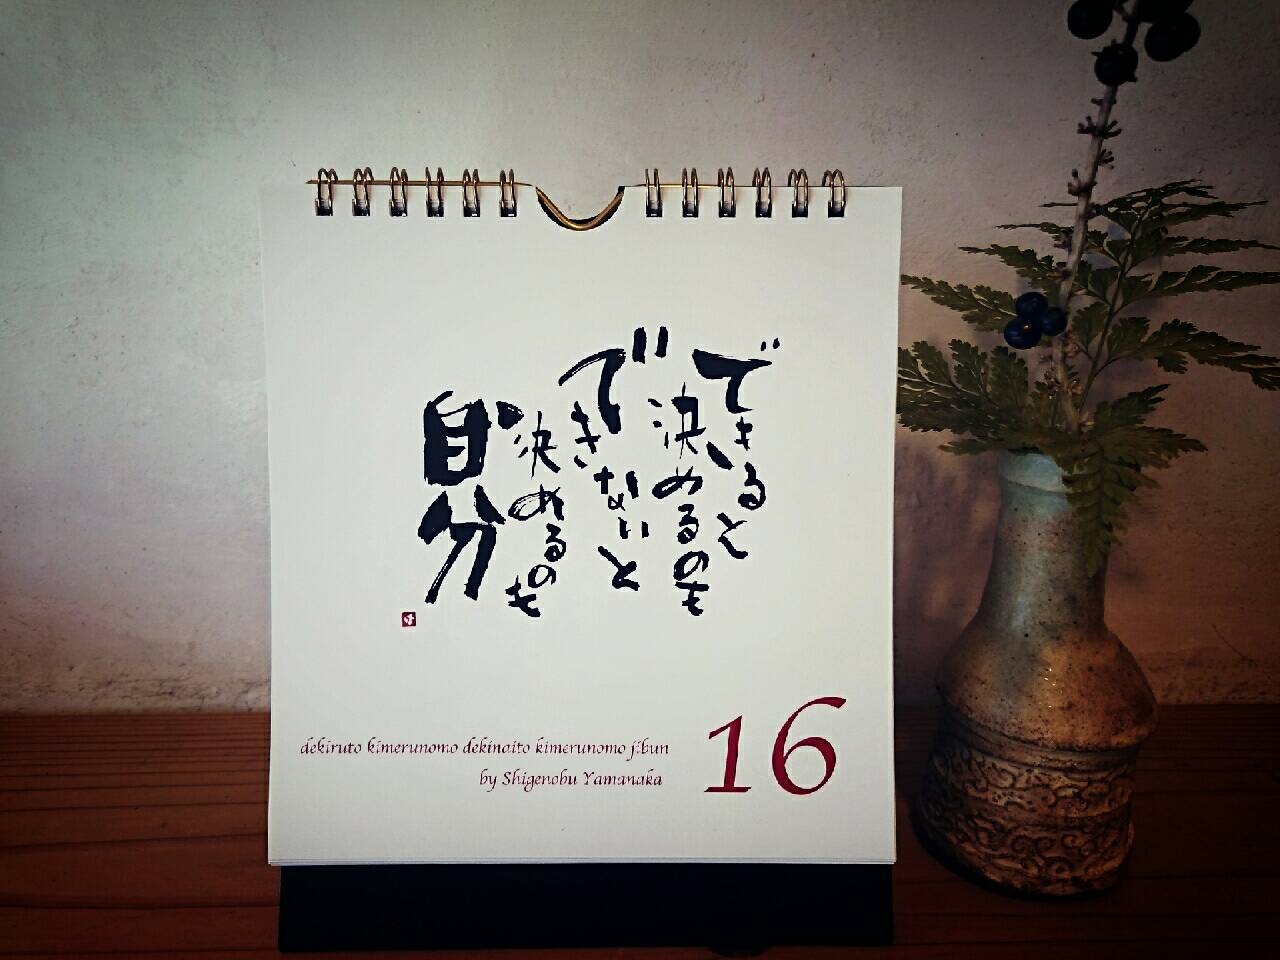 できると
決めるのも
できないと
決めるのも
自分
dekiruto kimerunomo dekinaito kimerunomo jibun
by Shigenobu Yamanaka
16